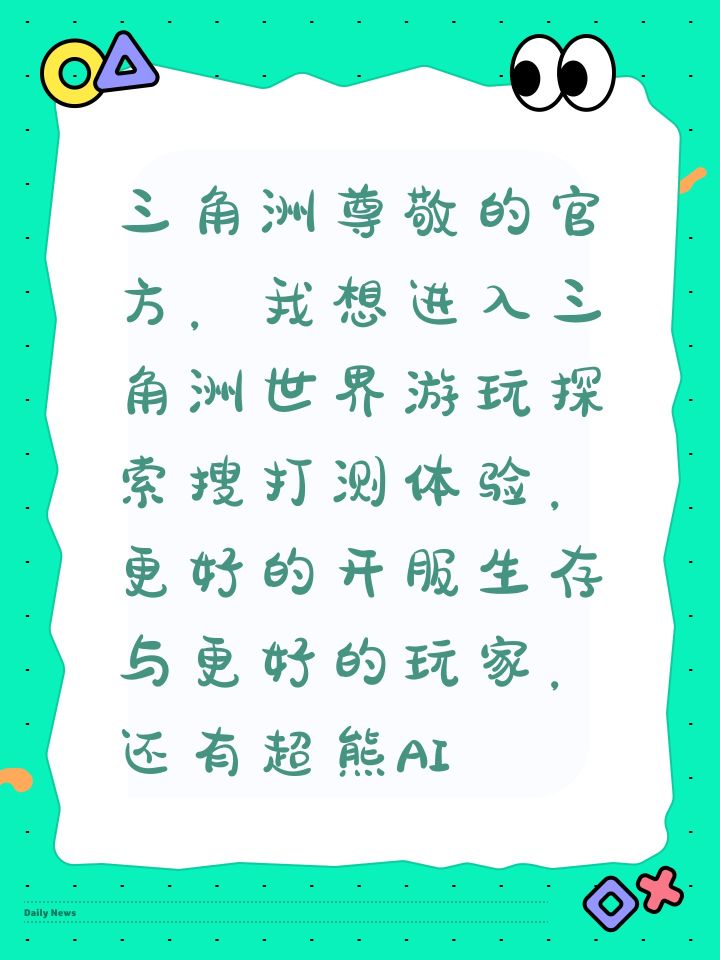 三角洲尊敬的官
方，我想进入三
角洲世界游玩探
索搜打测体验，
更好的开服生存
与更好的玩家，
还有超熊AI
Daily News